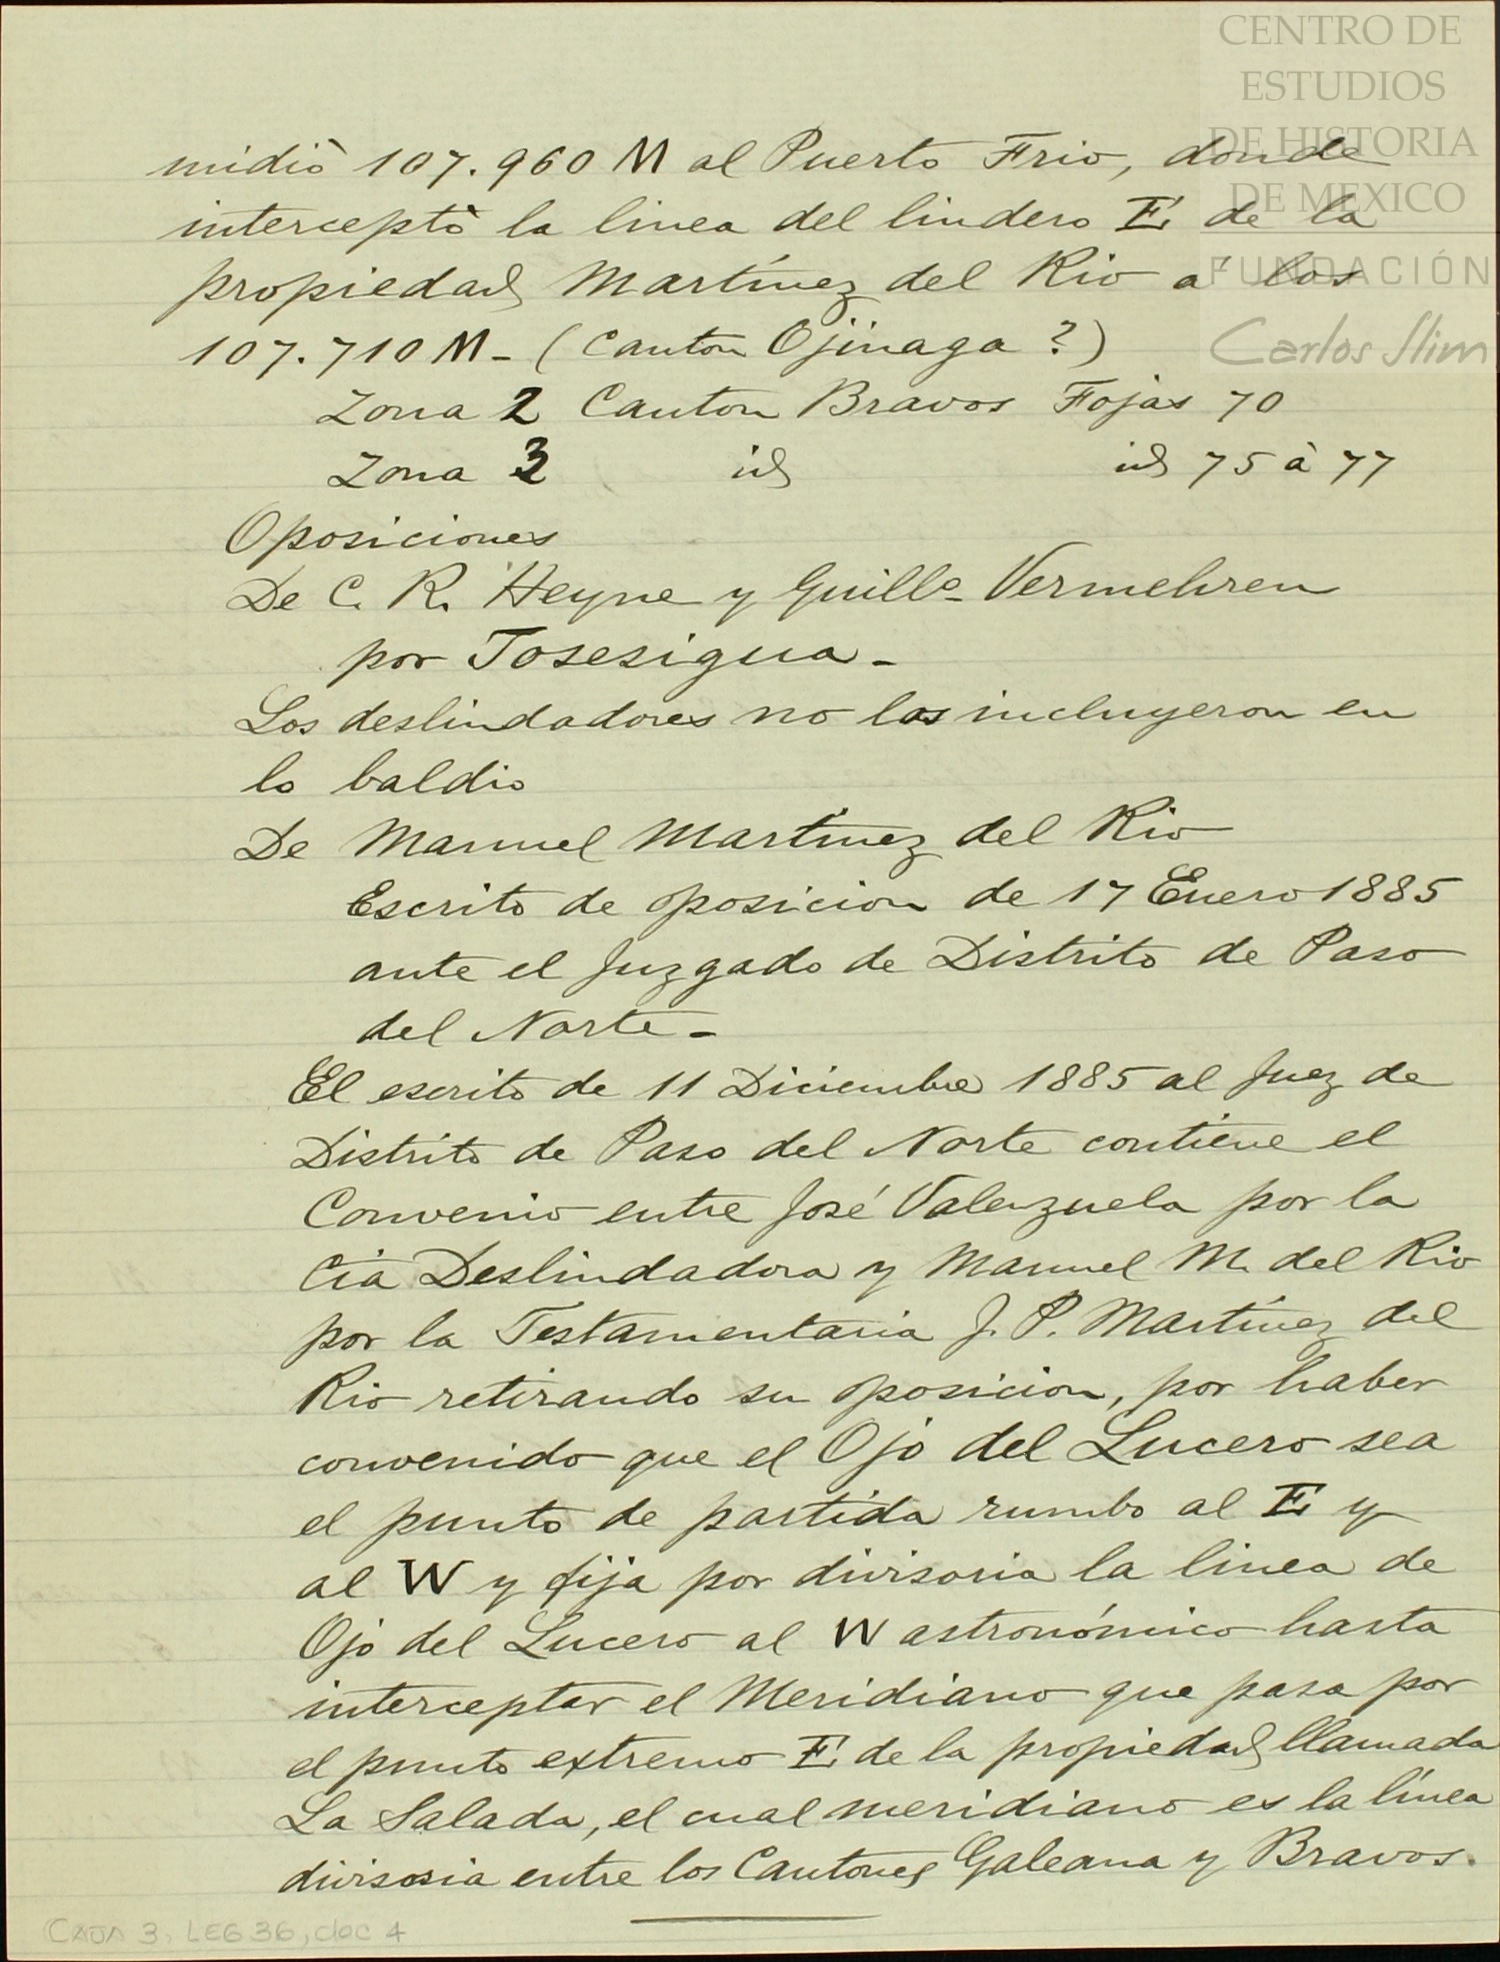 CENTRO DE
ESTUDIOS
DE HISTORIA
DE MEXICO
FUNDACIÓN
Carlos Slim
midiò 107.960 M al Puerto Frio, donde
interceptò la linea del lindero E de la
propiedad Martínez del Rio a los
107.710 M - (Canton Ojinaga ?)
Zona 2 Canton Bravos Fojas 70
Zona 3 id id 75 à 77
Oposiciones
De C. R. Heyne y Guillo- Vermehren
por Tosesigua -
Los deslindadores no las incluyeron en
lo baldio
De Manuel Martinez del Rio
Escrito de oposicion de 17 Enero 1885
ante el Juzgado de Distrito de Paso
del Norte -
El escrito de 11 Diciembre 1885 al Juez de
Distrito de Paso del Norte contiene el
Convenio entre José Valenzuela por la
Cia Deslindadora y Manuel M. del Rio
por la Testamentaria J. P. Martínez del
Rio retirando su oposicion, por haber
convenido que el Ojo del Lucero sea
el punto de partida rumbo al E y
al W y fija por divisoria la linea de
Ojo del Lucero al W astronómico hasta
interceptar el Meridiano que pasa por
el punto extremo E de la propiedad llamada
La Salada, el cual meridiano es la línea
divisoria entre los Cantones Galeana y Bravos.
CAJA 3, LEG 36, doc 4